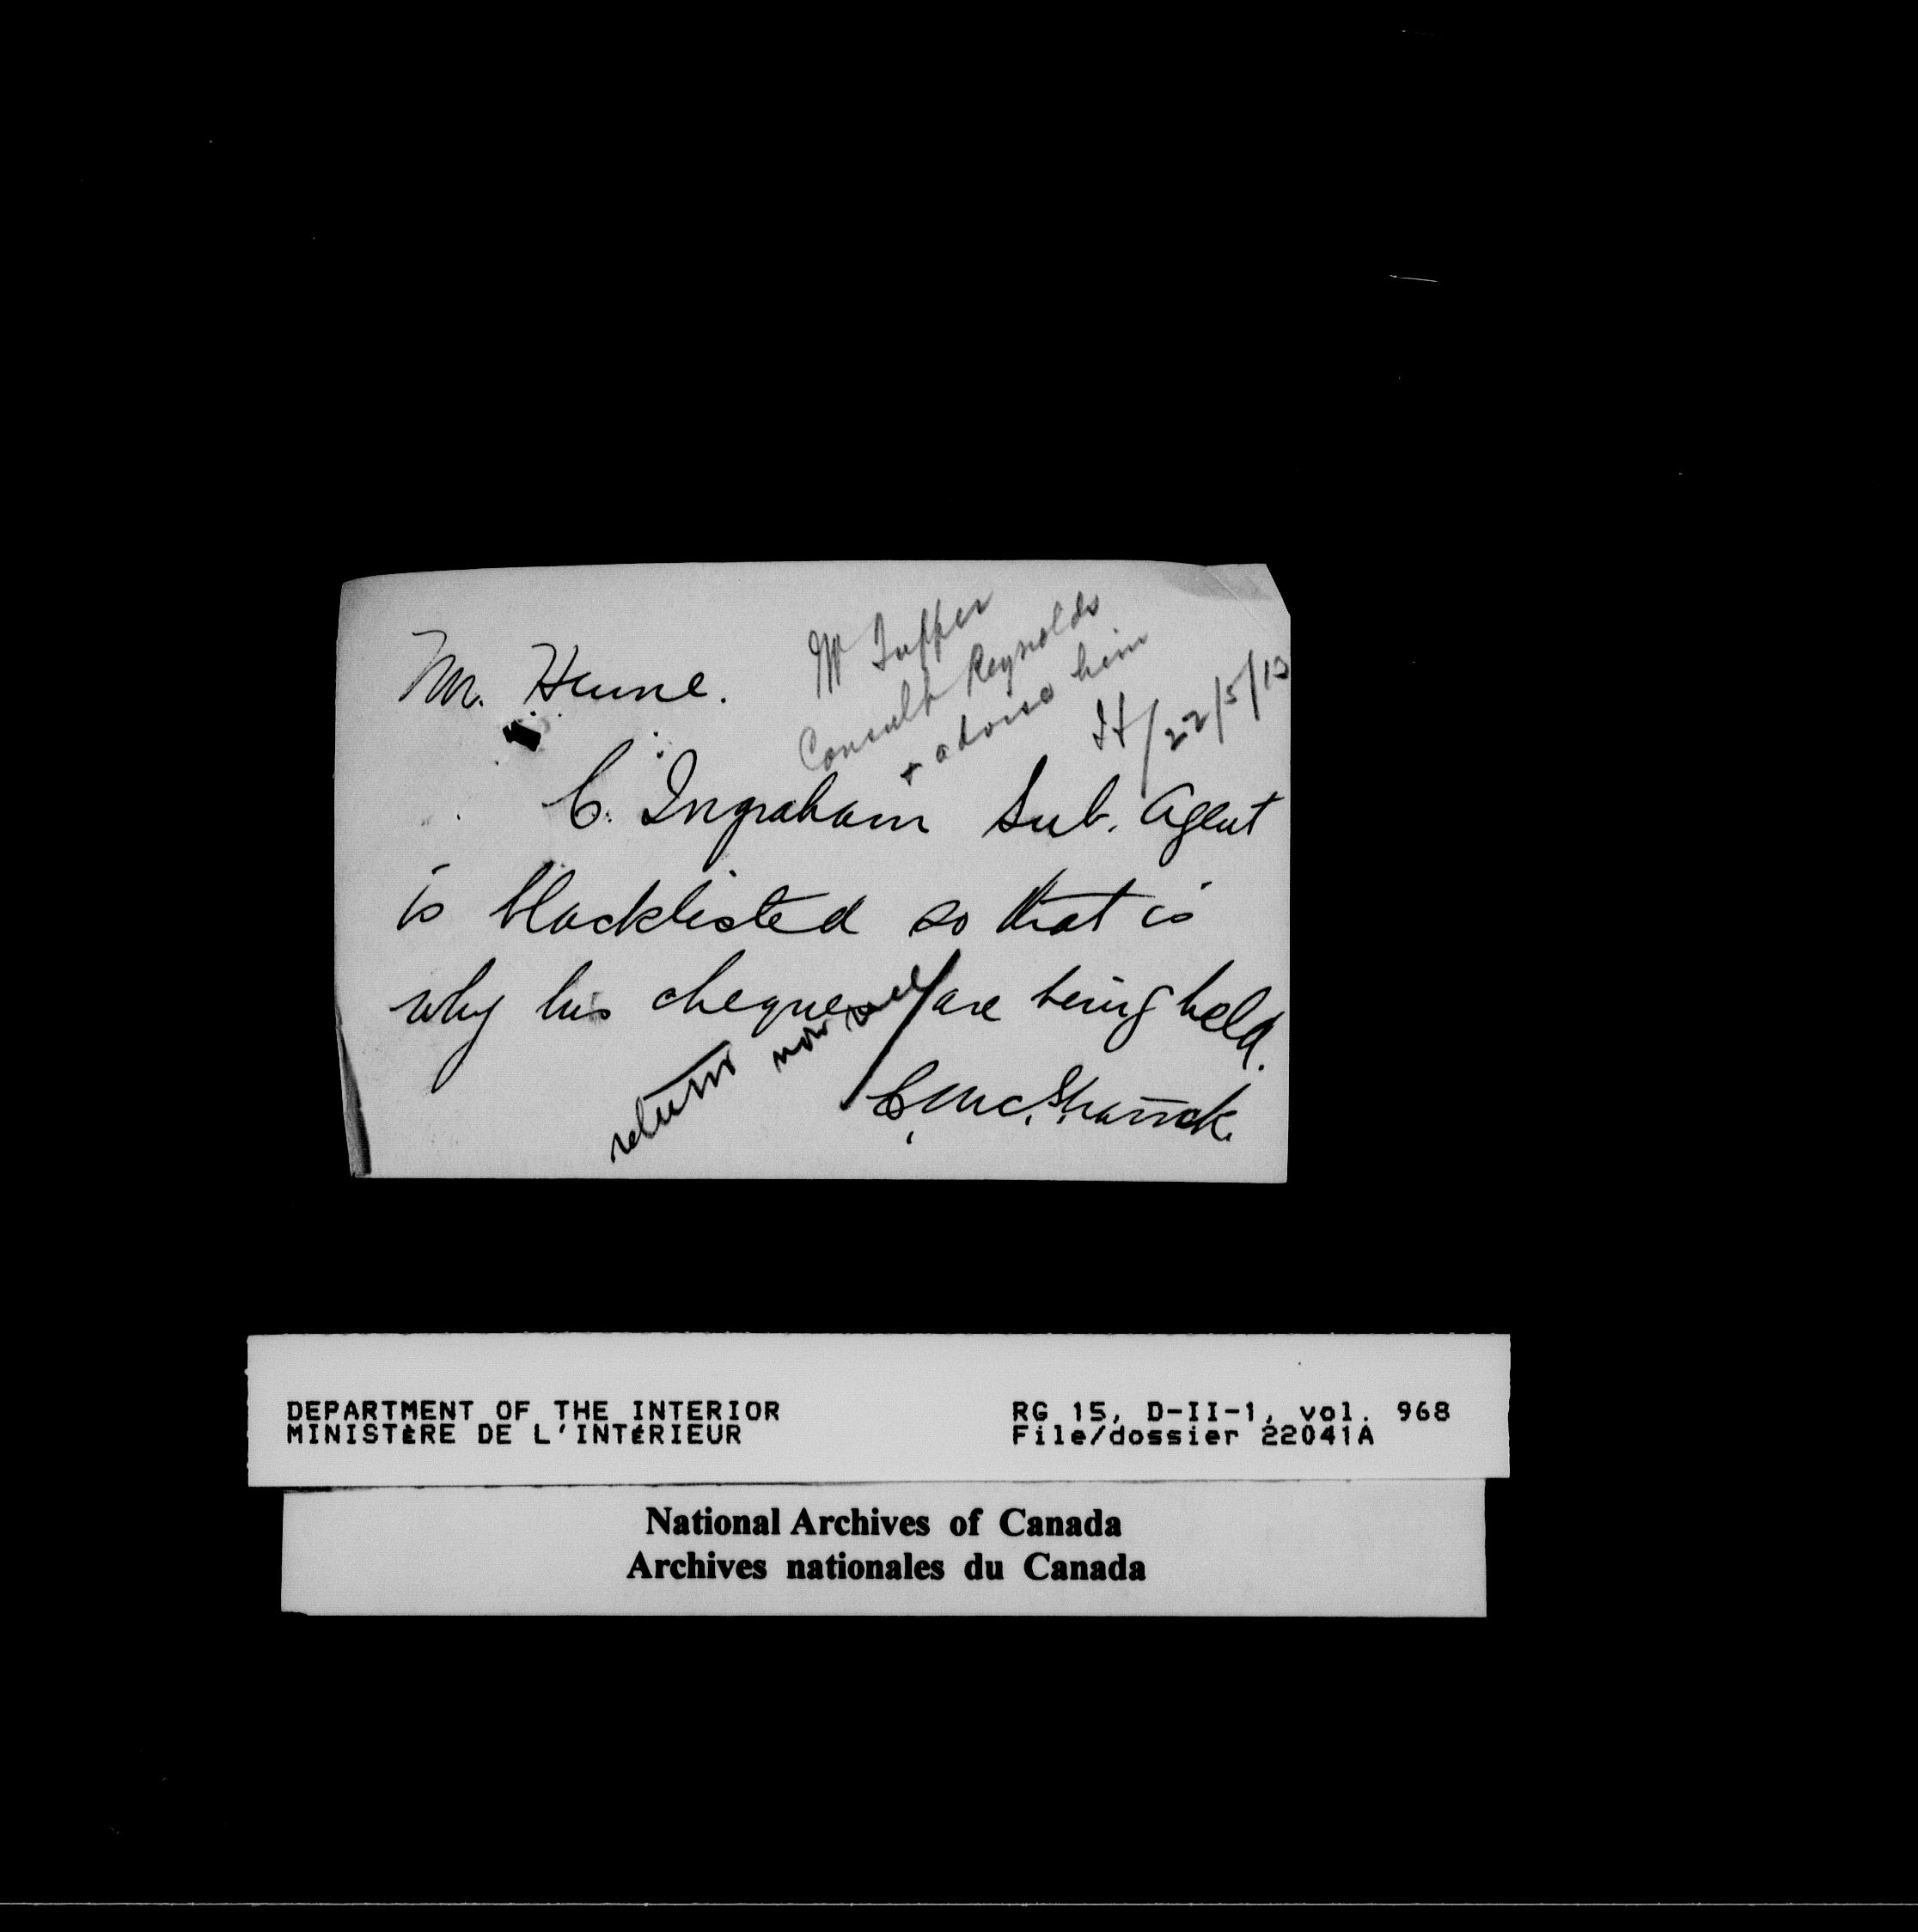 Mr. Hume.
Mr Tupper
Consult Reynolds
+ advise him
22/5/13
C. Ingraham Sub. Agent
is blacklisted so that is
why his cheques are being held.
returns now
DEPARTMENT OF THE INTERIOR
MINISTÈRE DE L'INTÉRIEUR
RG 15, D-II-1, vol. 968
File/dossier 22041A
National Archives of Canada
Archives nationales du Canada